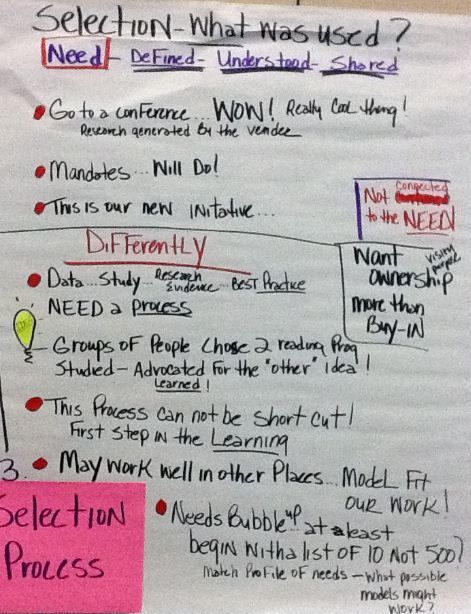 Selection - What was used?
Need - Defined - Understood - Shared
Go to a conference... WOW! Really Cool thing!
Research generated by the vender
Mandates... Will Do!
This is our new initative...
Not Conected
to the NEED!
Differently
Want
ownership
vision
more than
Buy-IN
Data... Study... Research Evidence... BEST Practice
NEED a Process
Groups of People chose 2 reading Prog
Studied - Advocated for the "other" idea!
Learned!
This Process can not be short cut!
First Step in the Learning
3. May work well in other Places... Model Fit
our work!
Needs Bubble up... at least
begin with a list of 10 not 500?
Match Profile of needs - what possible
models might
work?
Selection
Process